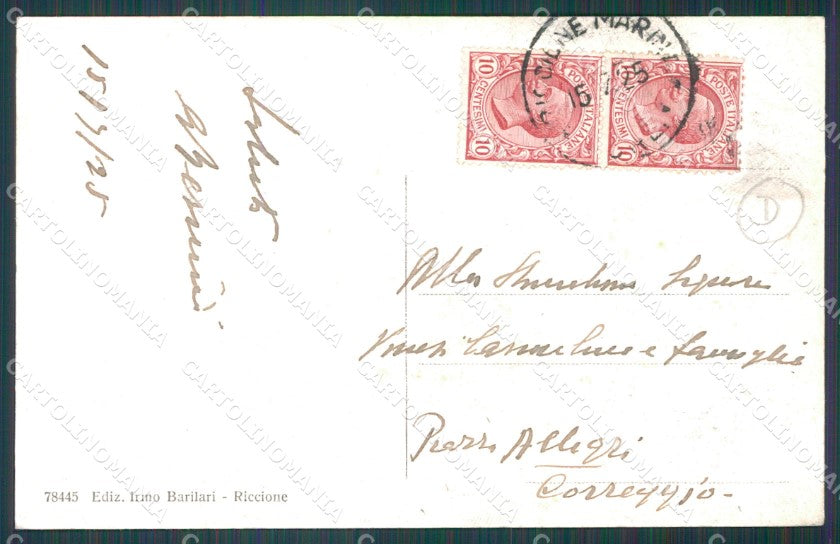 15/7/25
Saluti
RICCIONE MARINA
15
25
10 CENTESIMI 10
POSTE ITALIANE
10 CENTESIMI 10
POSTE ITALIANE
D
Alla Signora
e famiglia
Piazza Allegri
Correggio
78445 Ediz. Irmo Barilari - Riccione
CARTOLINOMANIA